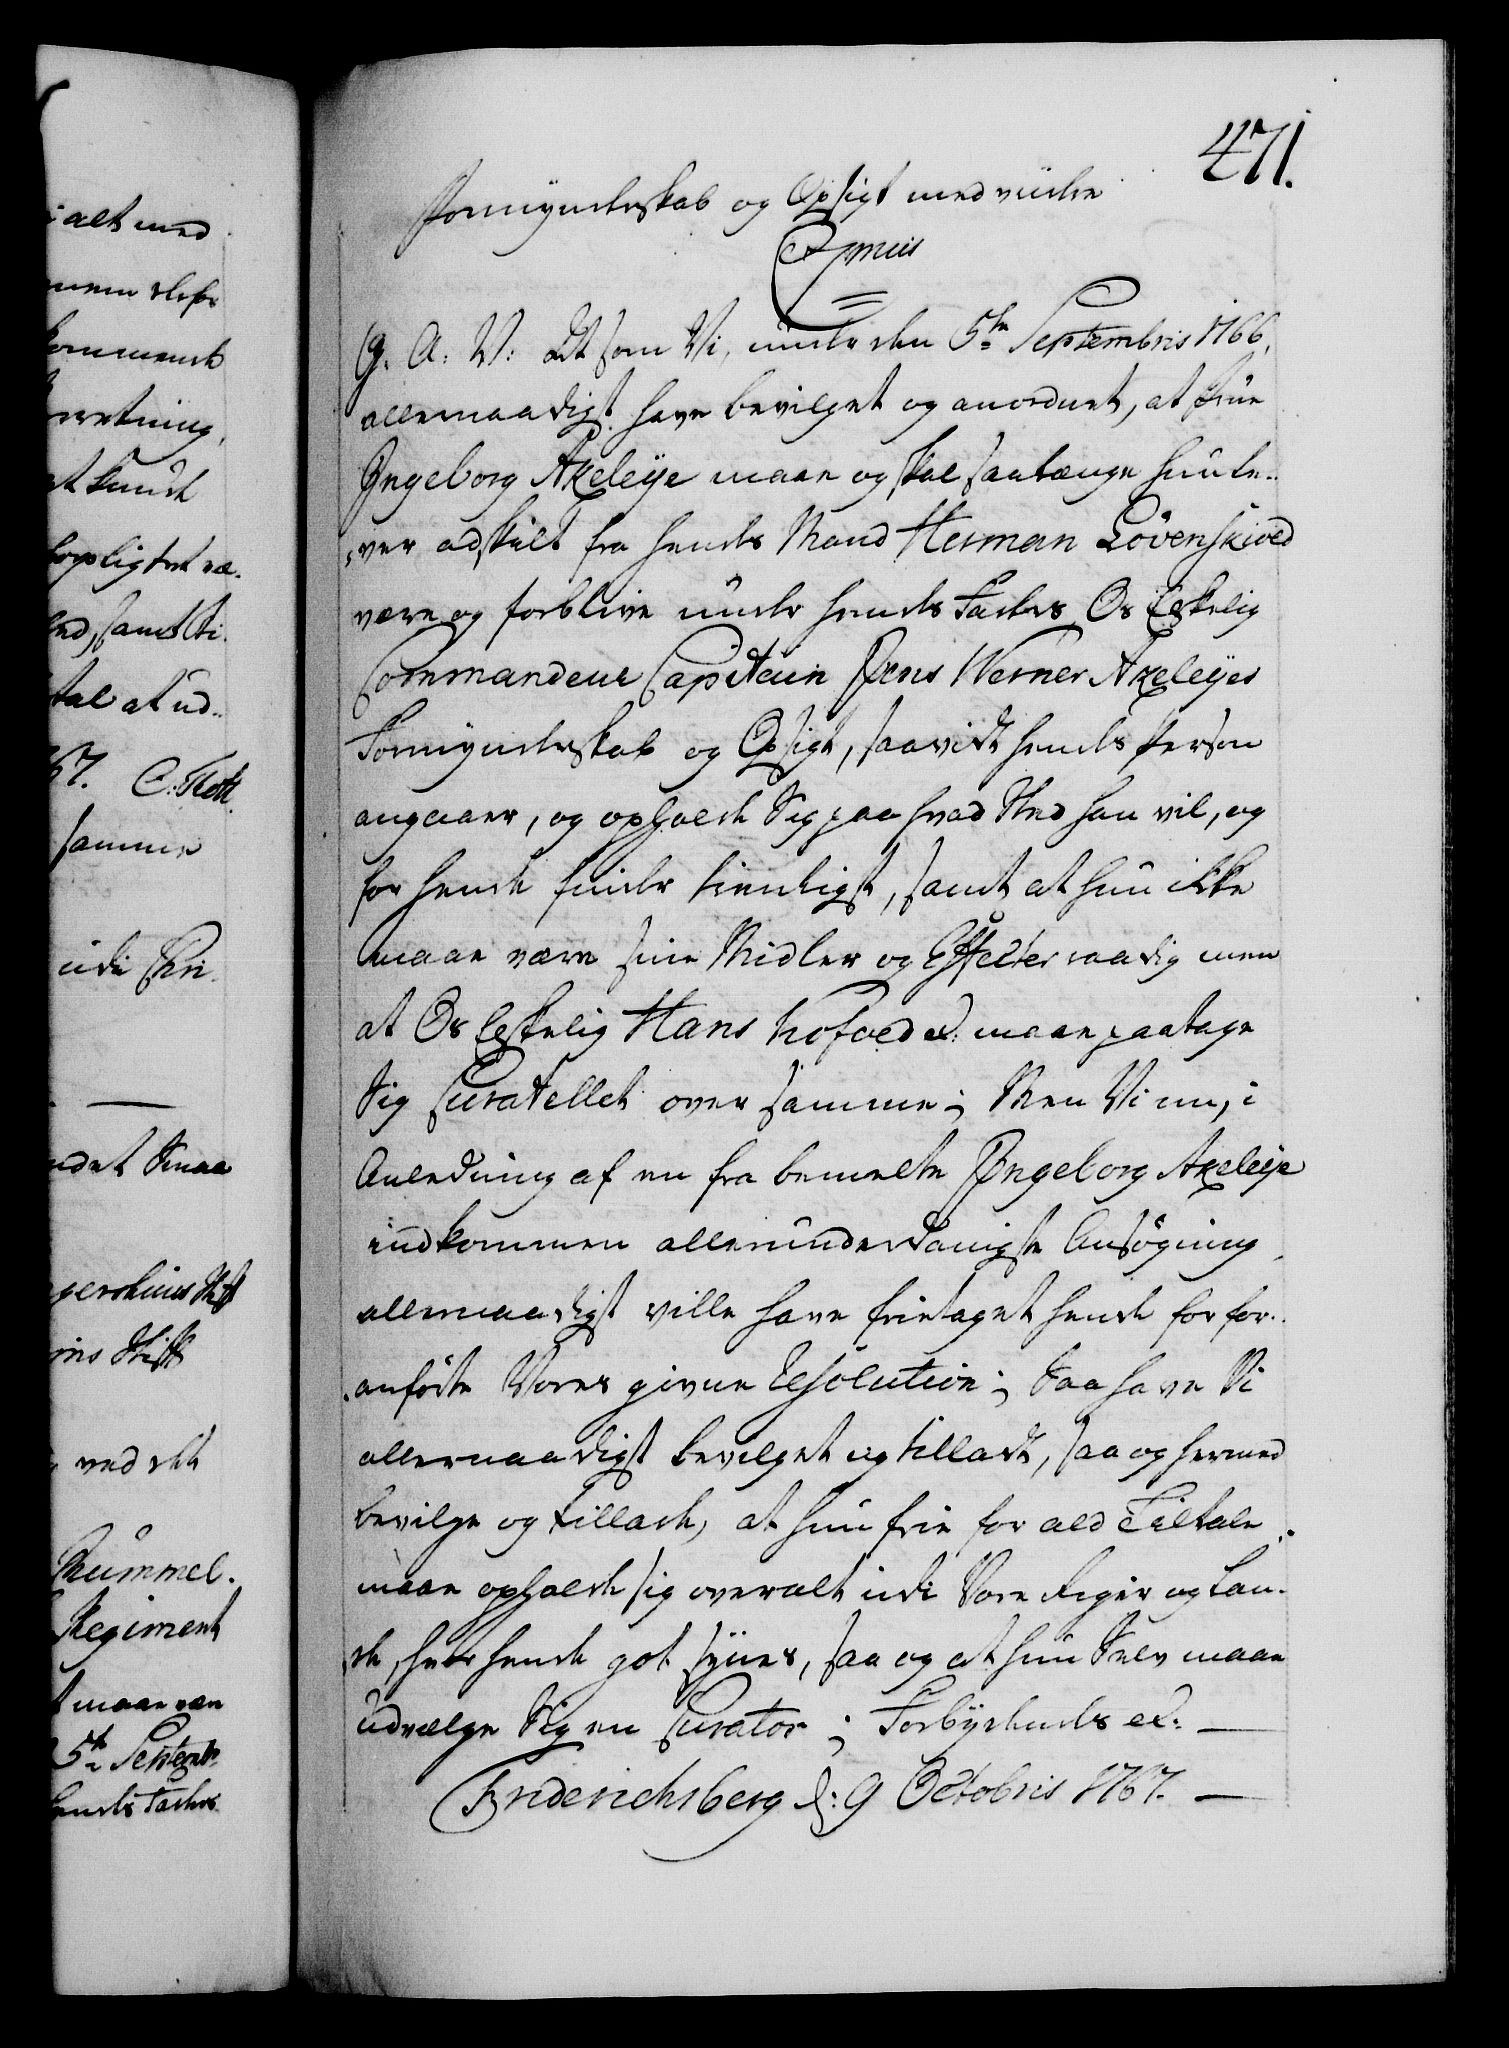 471.
Formynderskab og Opsigt med viidere
G. A. V: At som Vi, under den 5te Septembris 1766,
allernaadigst have bevilget og anordnet, at Frue
Ingeborg Akeleÿe maae og skal saalænge hun le-
ver adskilt fra hendes Mand Herman Lövenskiold
være og forblive under hendes Faders Os Elskelig
Commandeur Capitain Jens Werner Akeleÿes
Formynderskab og Opsigt, saavidt hendes Person
angaaer, og opholde Sig paa hvad Sted han vil, og
for hende finder tienligst, samt at hun ikke
maae være sine Midler og Effecter raadig men
at Os Elskelig Hans Kofoed &: maae paatage
Sig Curatellet over samme; Men Vi nu, i
Anledning af en fra bemelte Ingeborg Akeleÿe
indkommen allerunderdanigste Ansøgning,
allernaadigst ville have frietaget hende for for-
anførte Vores givne Resolution; Saa have Vi
allernaadigst bevilget og tilladt, saa og hermed
bevilge og tillade, at hun frie for ald Tiltale
maae opholde sig overalt udi Vore Riger og Lan-
de, hvor hende got synes, saa og at hun Selv maae
udvælge Sig en Curator; Forbydendes &: —
Friderichsberg d: 9 Octobris 1767. —
i alt med
kommende
rretning,
at kunde
forpligtet væ-
samt ti
tal at ud-
67. C: Mott
samme
udi Chri
ndet Smaa
gershuus Stift
Stift
ved det
Rummel.
Regiment
maae være
5te Septemb.
hendes Faders